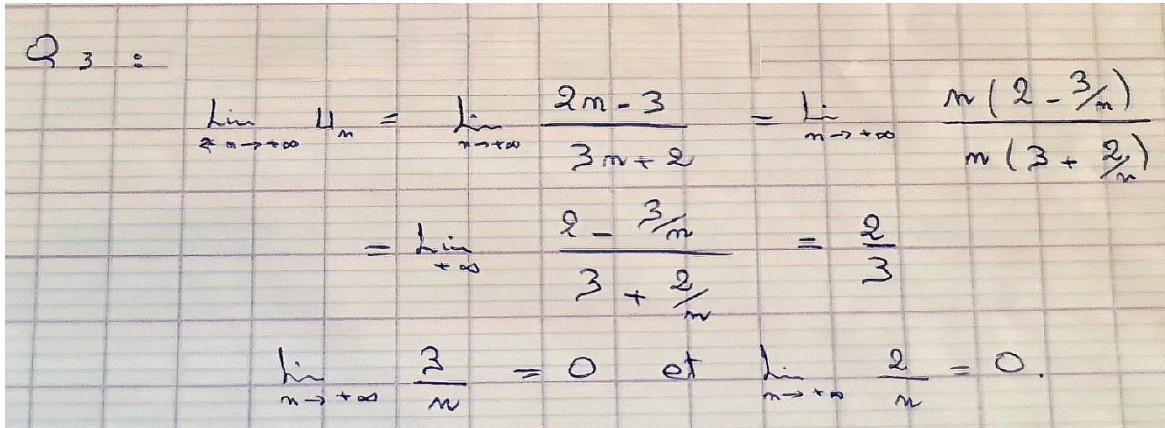 Q 3 :
Lim n→+∞ U_n = Lim n→+∞ (2n - 3)/(3n + 2) = Li n→+∞ n(2 - 3/n)/n(3 + 2/n)
= Lim +∞ (2 - 3/n)/(3 + 2/n) = 2/3
Lim n→+∞ 3/n = 0 et Lim n→+∞ 2/n = 0.